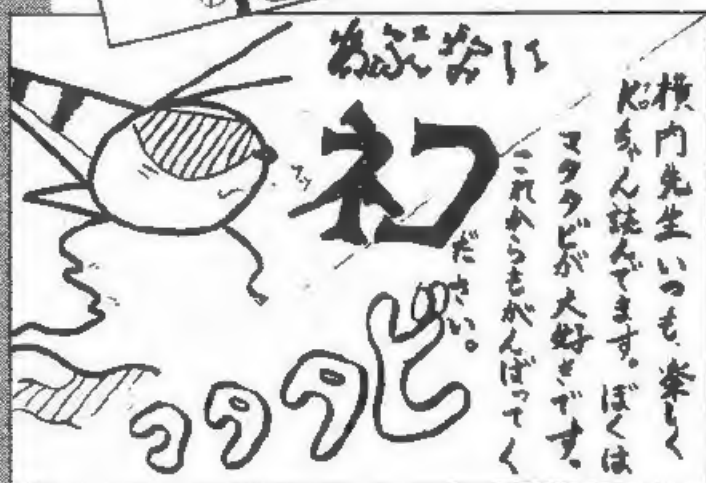 あぶない
ネコ
マタタビ
横内先生いつも、楽しく
クロちゃん読んでます。ぼくは
マタタビが大好きです。
これからもがんばってく
ださい。